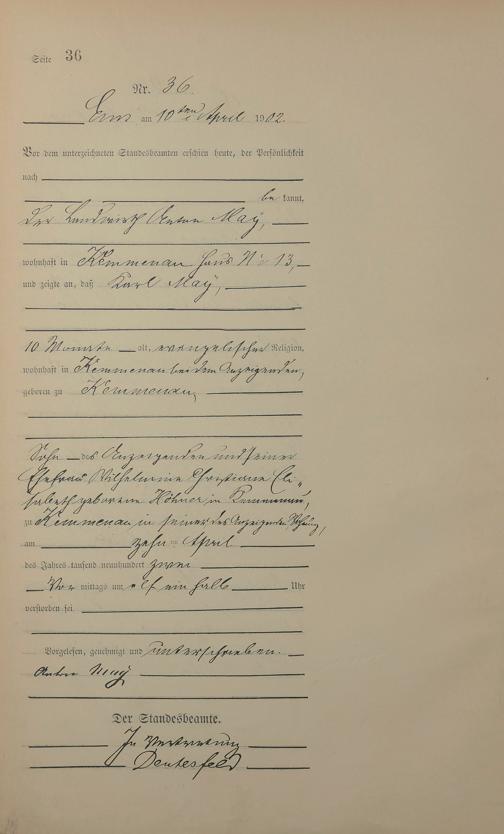 Seite 36
Nr. 36.
Ems am 10ten April 1902.
Vor dem unterzeichneten Standesbeamten erschien heute, der Persönlichkeit
nach
be kannt,
der Landwirth Anton Maÿ,
wohnhaft in Kemmenau Haus No 13,
und zeigte an, daß Karl Maÿ,
10 Monate alt, evangelischer Religion,
wohnhaft in Kemmenau bei dem Anzeigenden,
geboren zu Kemmenau,
Sohn des Anzeigenden und seiner
Ehefrau Wilhelmine Christiane Eli„
sabeth geborene Höhner in Kemmenau,
zu Kemmenau in seiner des Anzeigenden Wohnung,
am zehn ten April
des Jahres tausend neunhundert zwei
Vor mittags um elf ein halb Uhr
verstorben sei.
Vorgelesen, genehmigt und unterschrieben.
Anton Maÿ
Der Standesbeamte.
In Vertretung